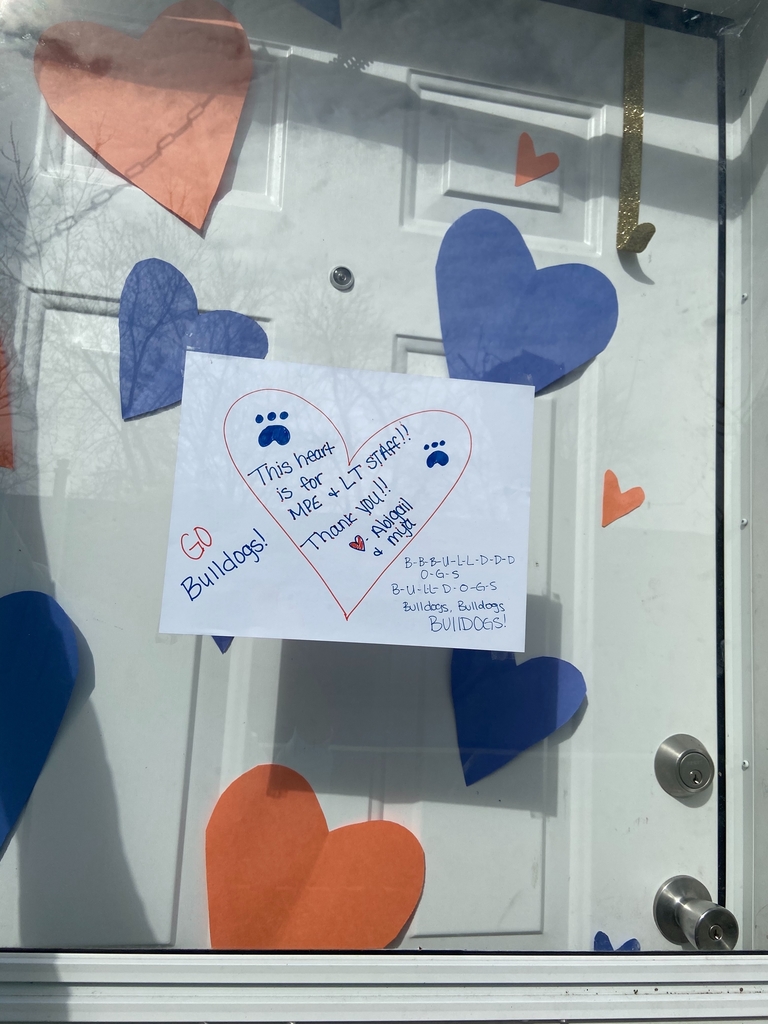 This heart
is for
MPE & LT STAff!!
Thank you!!
- Abigail
& mya
GO
Bulldogs!
B-B-B-U-L-L-D-D-D
O-G-S
B-U-LL-D-O-G-S
Bulldogs, Bulldogs
BUllDOGS!